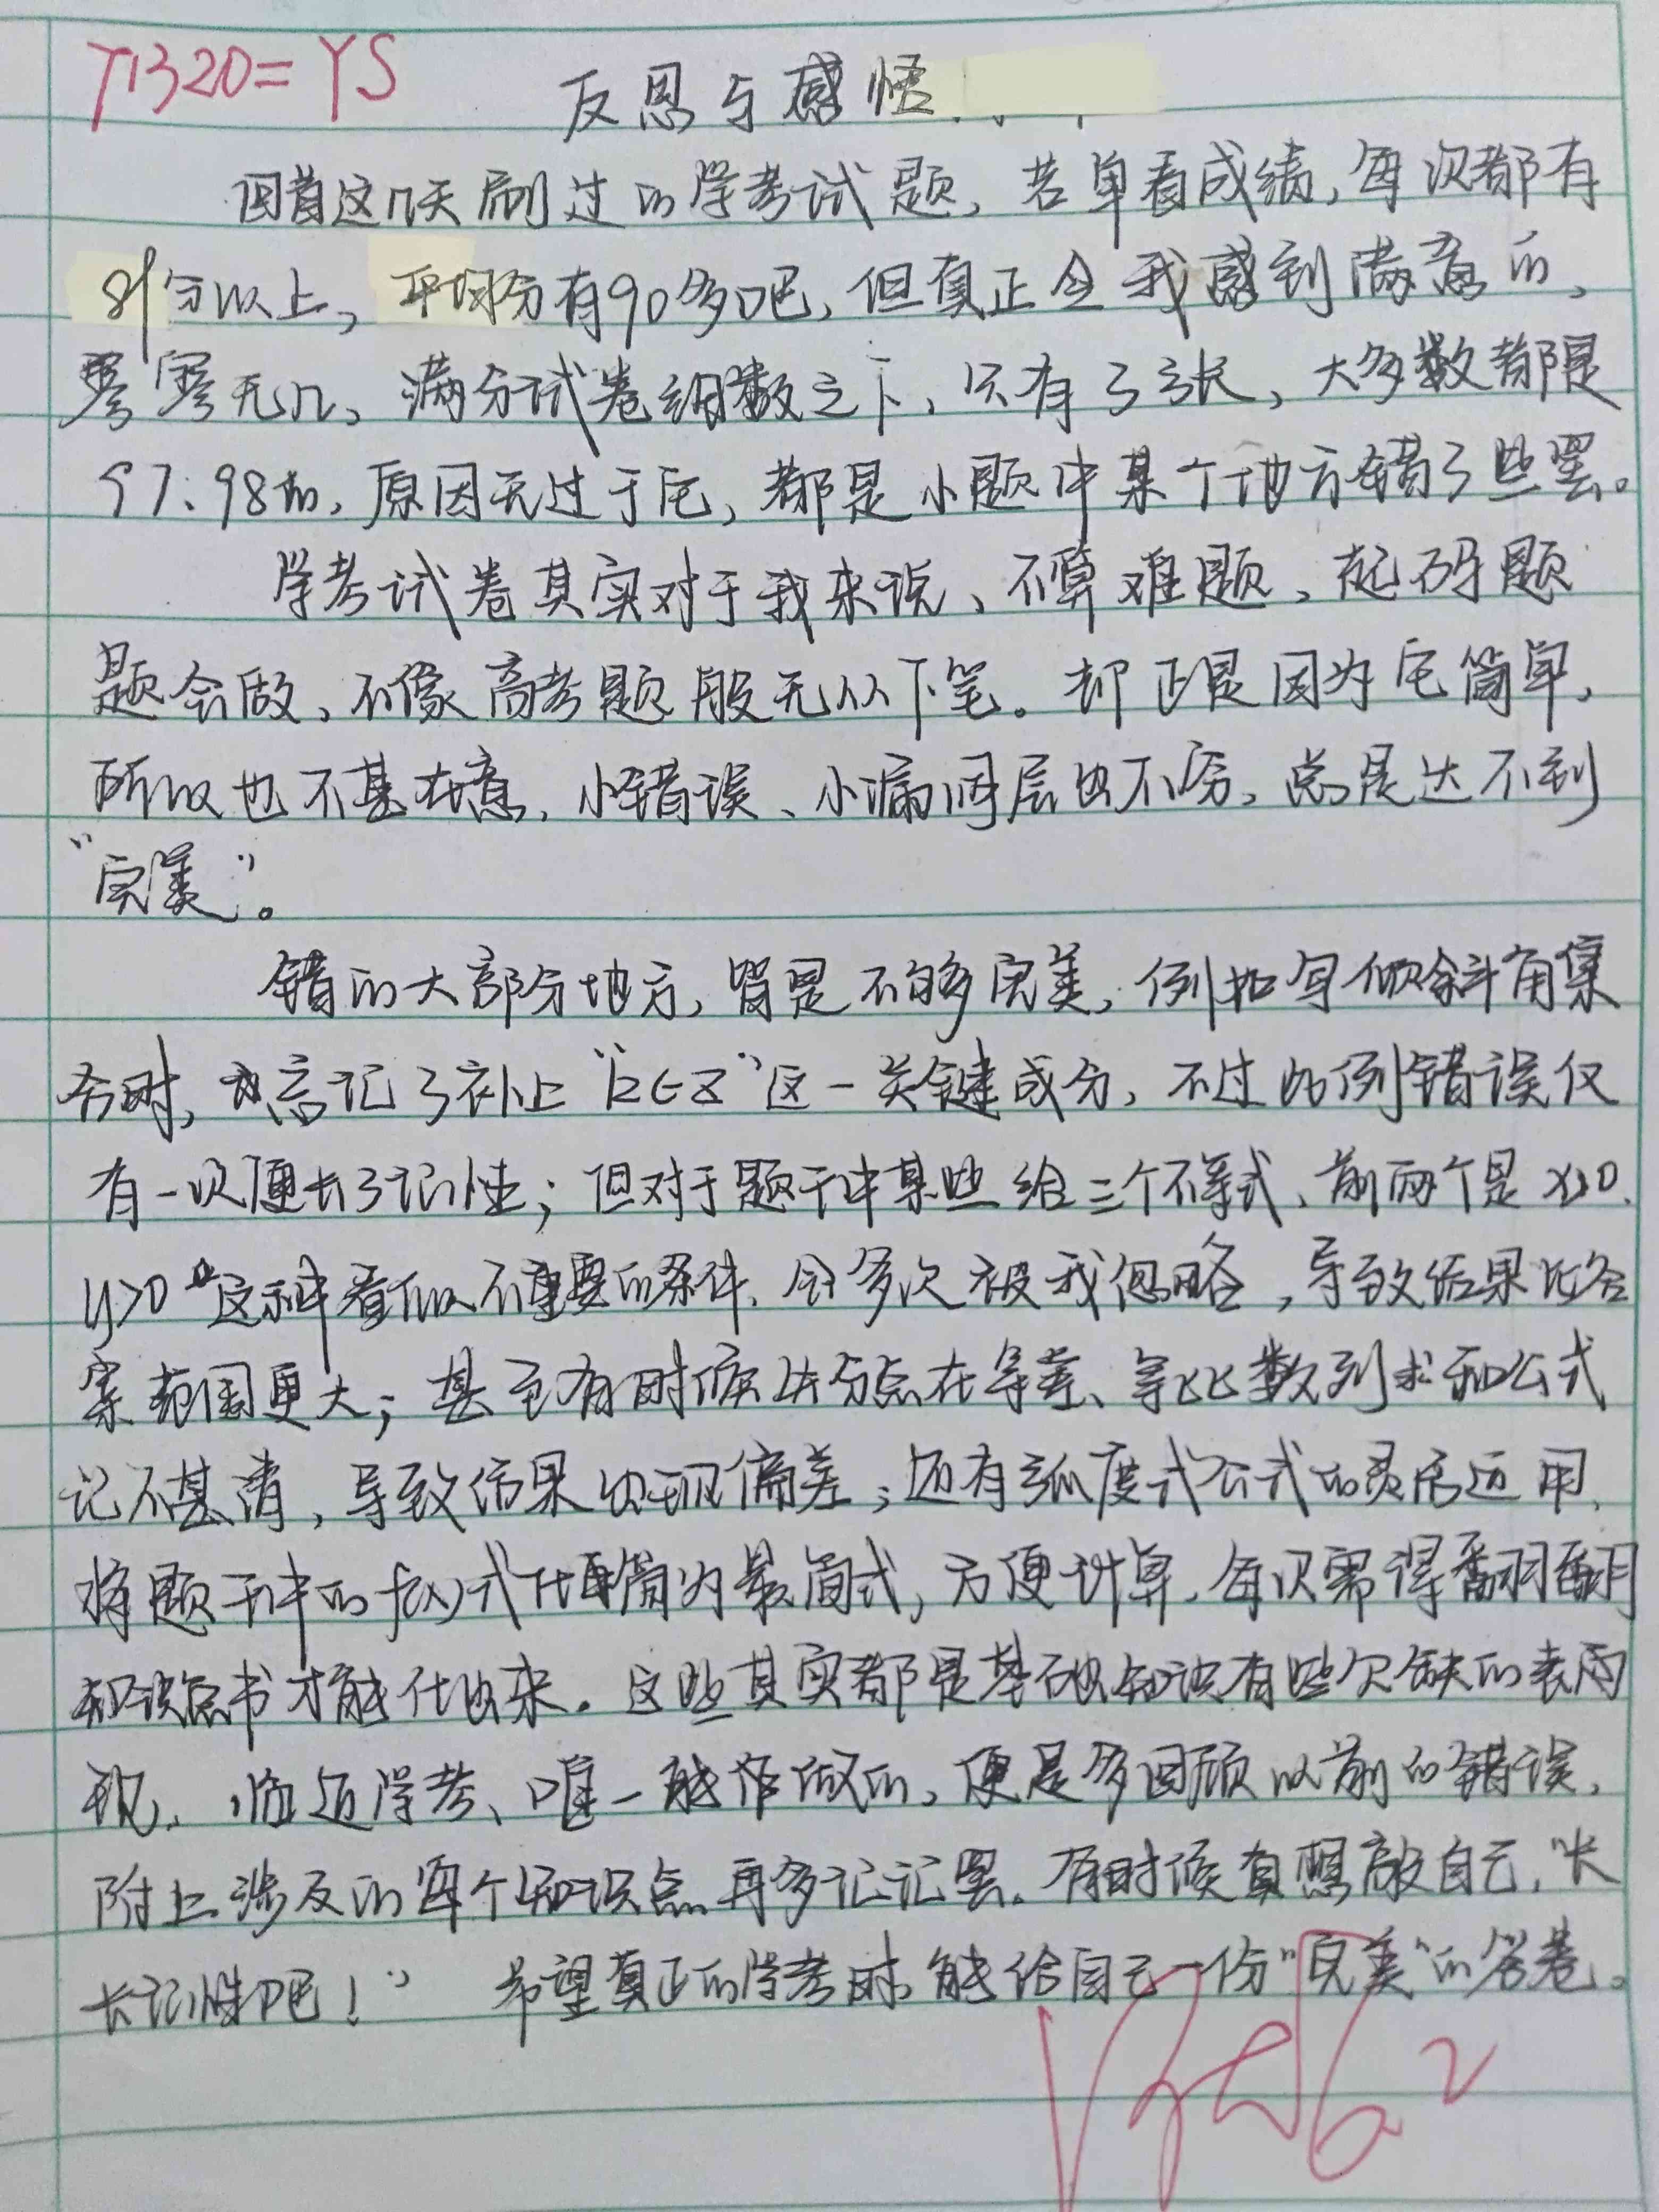 T1320=YS
反思与感悟
回首这几天刷过的学考试题,若单看成绩,每次都有
81分以上,平均分有90多吧,但真正令我感到满意的,
寥寥无几,满分试卷细数之下,只有了3张,大多数都是
97、98的,原因无过于它,都是小题中某个地方错了些罢。
学考试卷其实对于我来说、不算难题,起码题
题会做,不像高考题般无从下笔。却正是因为它简单,
所以也不甚在意,小错误、小漏洞层出不穷,总是达不到
“完美”。
错的大部分地方,皆是不够完美,例如写倾斜角集
合时,忘记了补上“k∈Z”这一关键成分,不过此例错误仅
有一次便长了记性;但对于题干中某些给三个不等式、前两个是x>0、
y>0这种看似不重要的条件,会多次被我忽略,导致结果比答
案范围更大;甚至有时候失分点在等差、等比数列求和公式
记不甚清,导致结果出现偏差;还有弧度式公式的灵活运用,
将题干中的f(x)式化简为最简式,方便计算,每次需得翻翻
知识点书才能化出来。这些其实都是基础知识有些欠缺的表
现。临近学考、唯一能做的,便是多回顾以前的错误,
附上涉及的每个知识点再多记记罢。有时候真想敲自己,“长
长记性吧!” 希望真正的学考时能给自己一份“完美”的答卷。